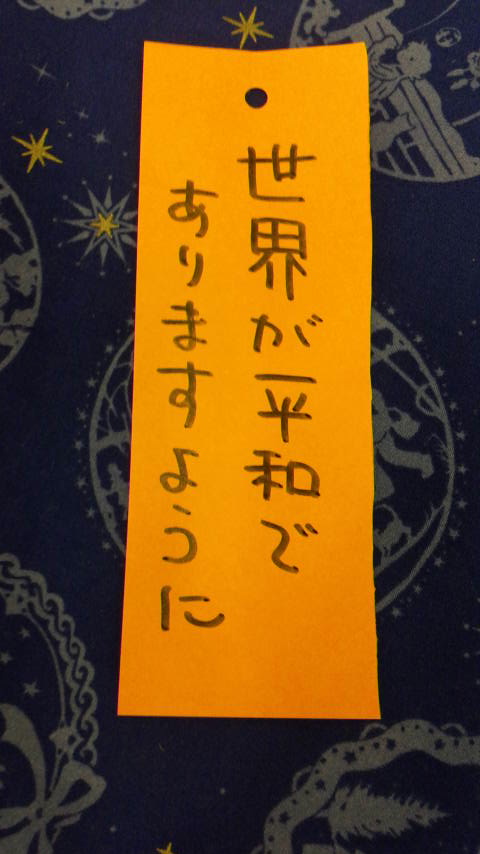 世界が平和で
ありますように